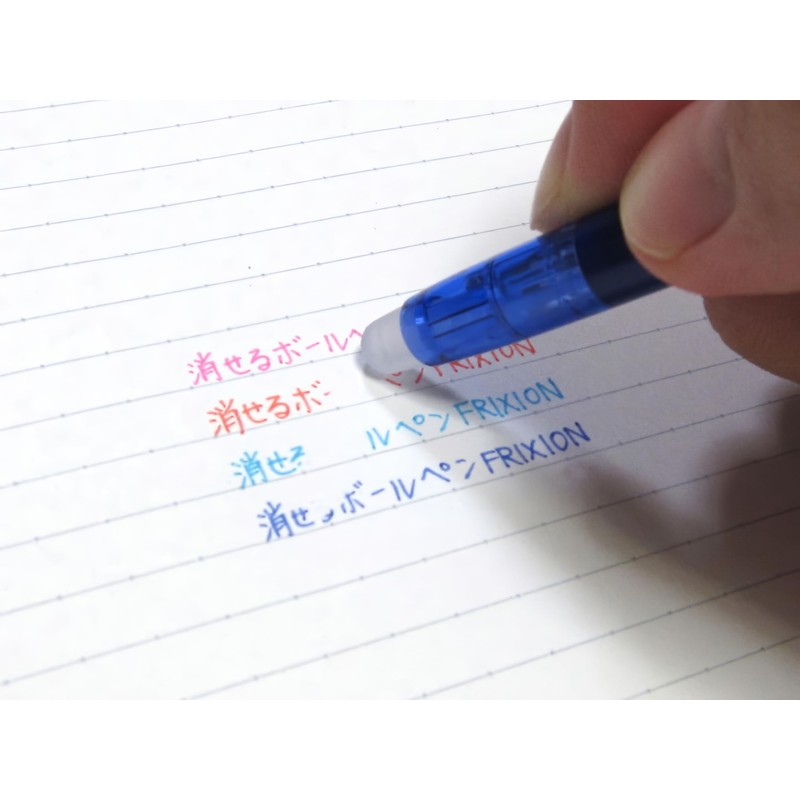 消せるボールペ
消せるボー ペンFRIXION
消せ ルペンFRIXION
消せ ボールペンFRIXION